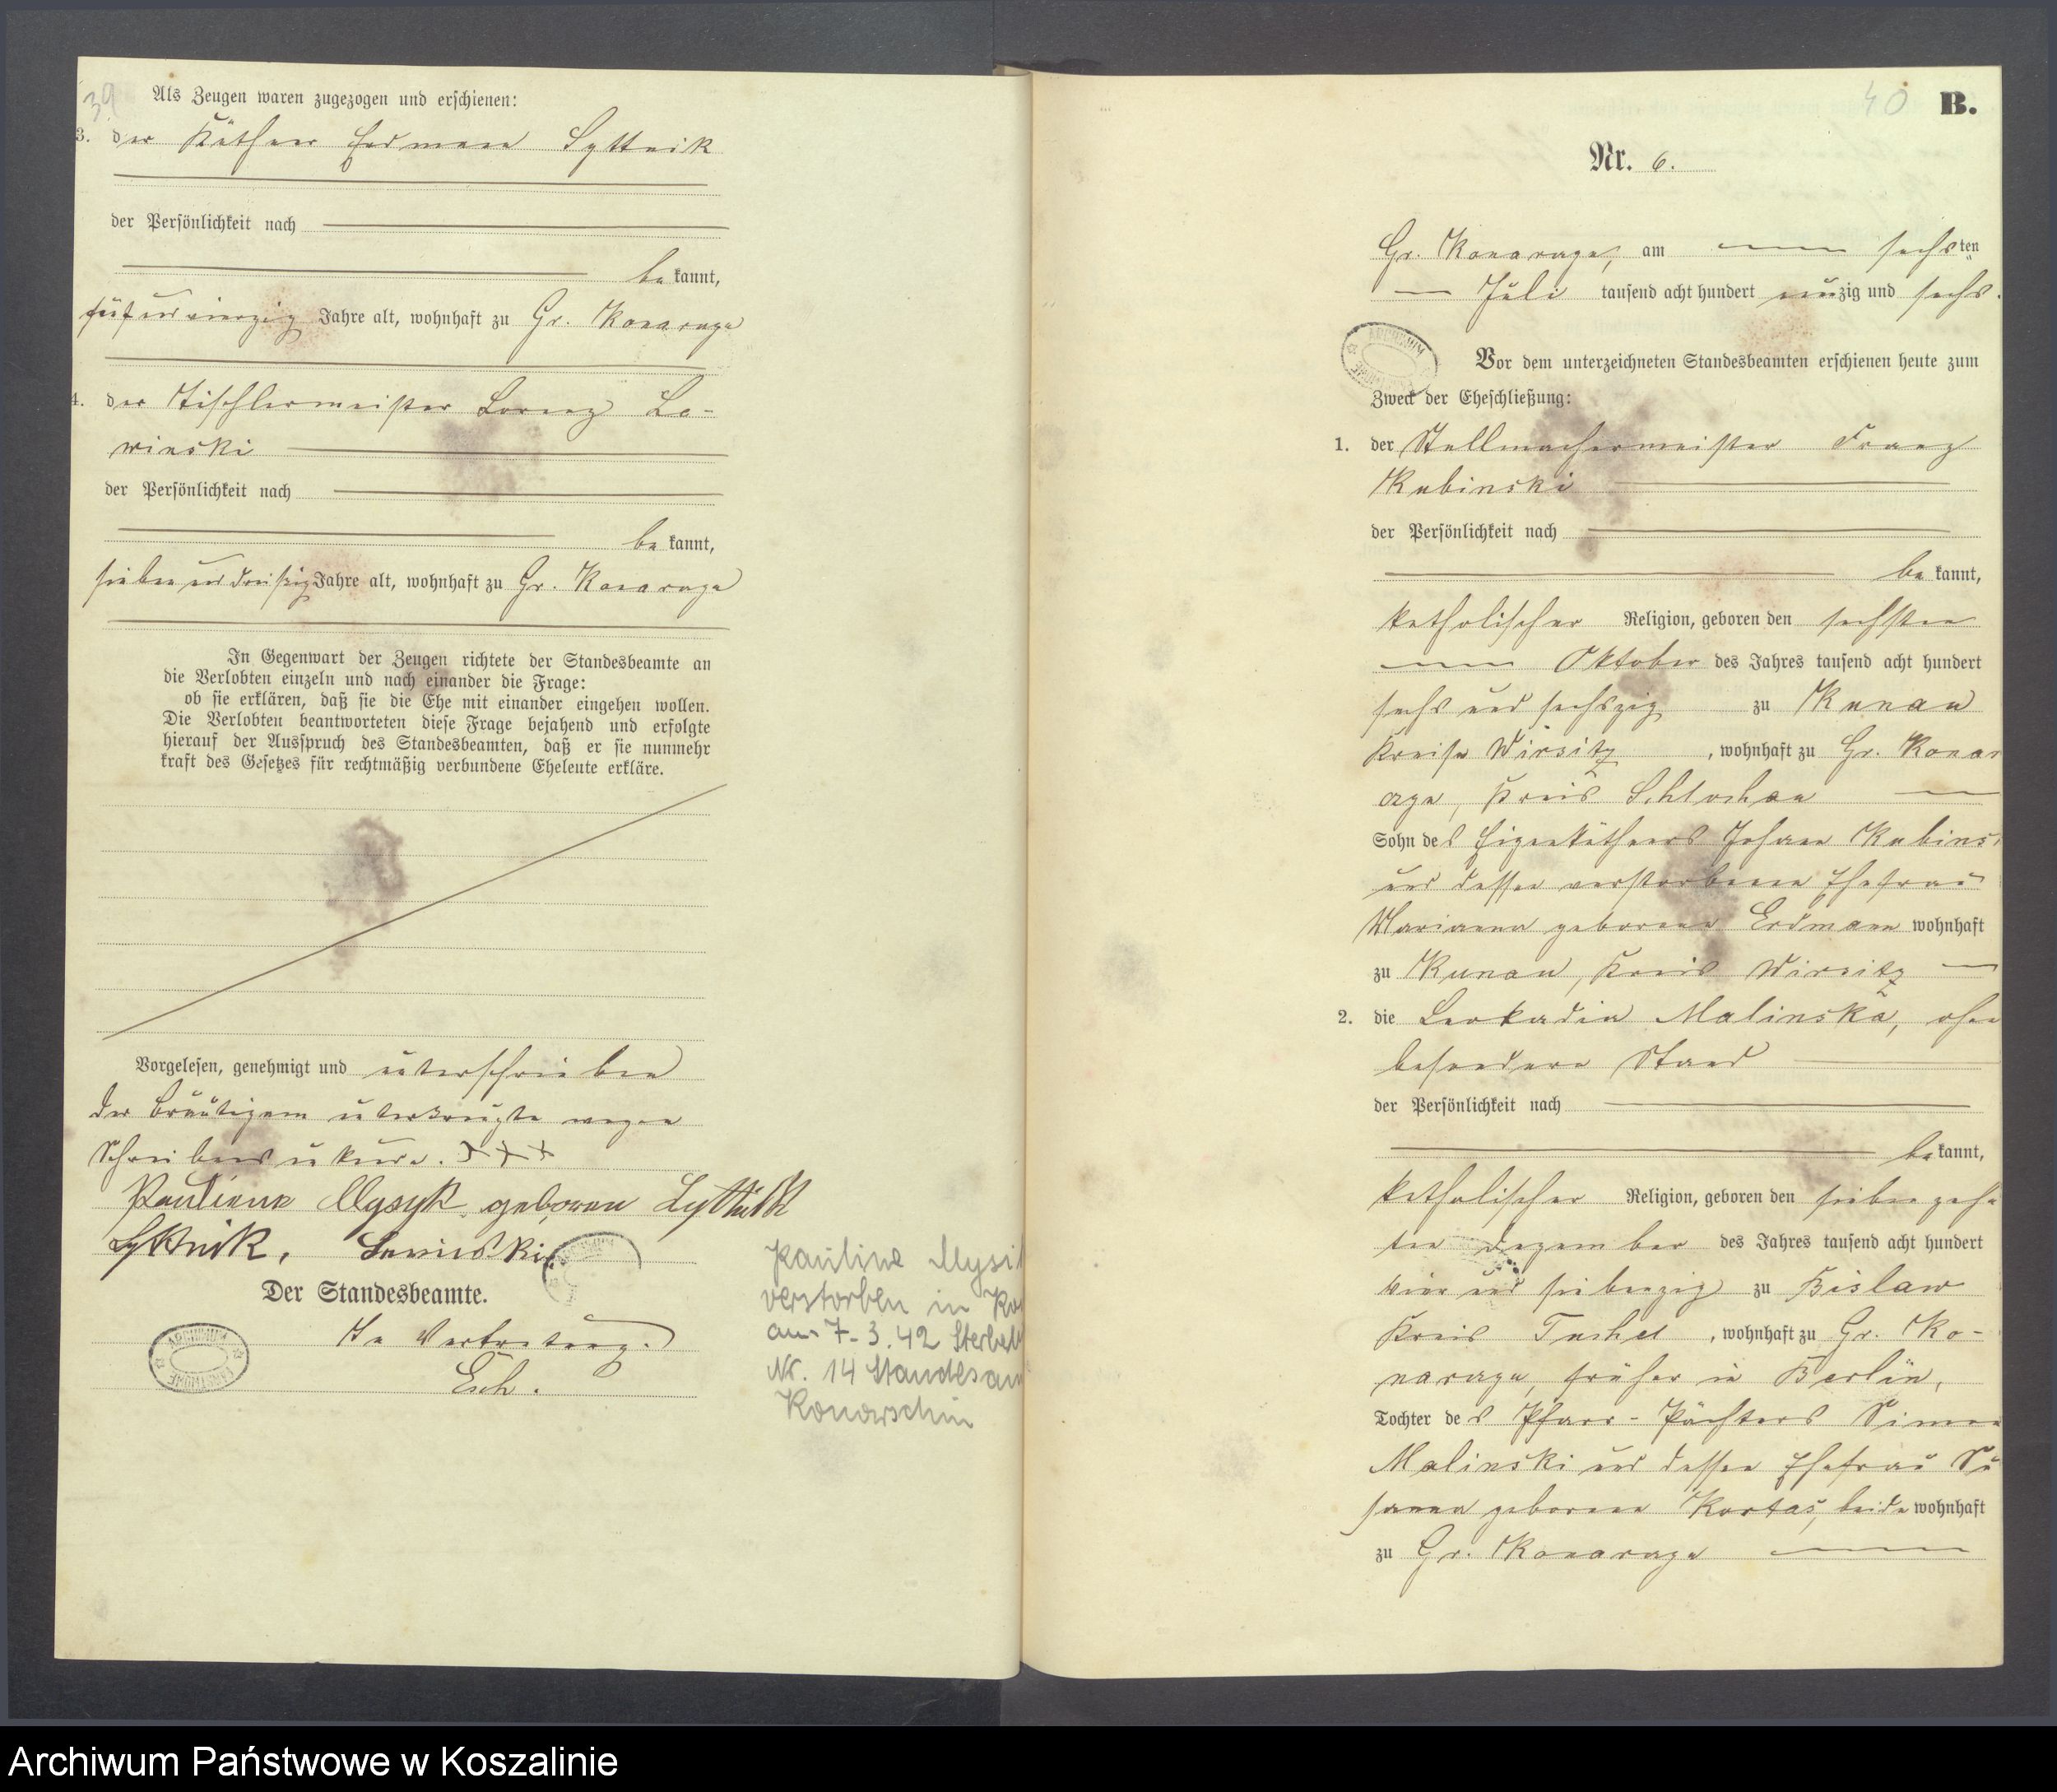 39
Als Zeugen waren zugezogen und erschienen:
3. der Käthner Erdmann Lyttnik
der Persönlichkeit nach
bekannt,
fünfundvierzig Jahre alt, wohnhaft zu Gr. Konarczyn
4. der Tischlermeister Lorenz La-
winski
der Persönlichkeit nach
bekannt,
sieben und dreißig Jahre alt, wohnhaft zu Gr. Konarczyn
In Gegenwart der Zeugen richtete der Standesbeamte an
die Verlobten einzeln und nach einander die Frage:
ob sie erklären, daß sie die Ehe mit einander eingehen wollen.
Die Verlobten beantworteten diese Frage bejahend und erfolgte
hierauf der Ausspruch des Standesbeamten, daß er sie nunmehr
kraft des Gesetzes für rechtmäßig verbundene Eheleute erkläre.
Vorgelesen, genehmigt und unterschrieben
der Bräutigam unterkreuzte wegen
Schreibensunkunde. XXX
Pauliene Mysyk geboren Lyttnik
Lyttnik, Lawinski
Der Standesbeamte.
In Vertretung.
Esch.
Pauline Mysi
verstorben in Ko
am 7.3.42 Sterbeb
Nr. 14 Standesam
Konarschin
40 B.
Nr. 6.
Gr. Konarczyn, am sechsten
Juli tausend acht hundert neunzig und sechs.
Vor dem unterzeichneten Standesbeamten erschienen heute zum
Zweck der Eheschließung:
1. der Stellmachermeister Franz
Kubinski
der Persönlichkeit nach
bekannt,
katholischer Religion, geboren den sechsten
Oktober des Jahres tausend acht hundert
sechs und sechszig zu Kunau
Kreise Wirsitz, wohnhaft zu Gr. Konar
czyn, Kreis Schlochau
Sohn des Eigenkäthners Johann Kubins
und dessen verstorbenen Ehefrau
Marianna geborene Erdmann wohnhaft
zu Kunau, Kreis Wirsitz
2. die Leokadia Malinska, ohne
besonderen Stand
der Persönlichkeit nach
bekannt,
katholischer Religion, geboren den siebenzehn
ten Dezember des Jahres tausend acht hundert
vier und siebenzig zu Bislaw
Kreis Tuchel, wohnhaft zu Gr. Ko-
narczyn, früher in Berlin,
Tochter des Pfarr-Pächters Simon
Malinski und dessen Ehefrau Su
sanna geborenen Kortas, beide wohnhaft
zu Gr. Konarczyn
Archiwum Państwowe w Koszalinie